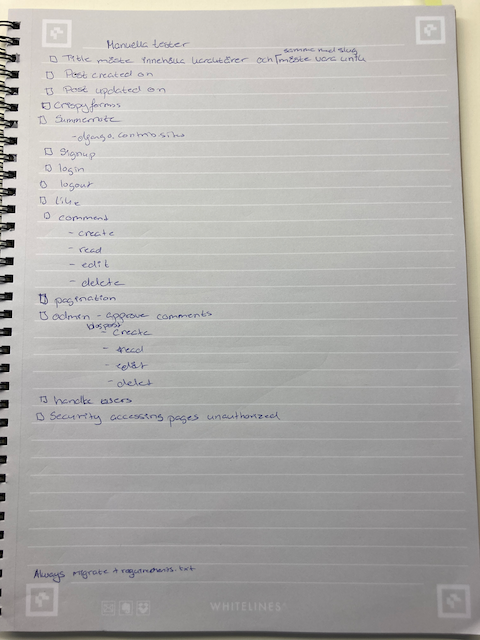 Manuella tester
samma med slug
Title måste innehålla karaktärer och måste vara unik
Post created on
Post updated on
Crispyforms
Summernote
- django.contrib.sites
Signup
login
logout
Like
comment
- create
- read
- edit
- delete
pagination
admin - approve comments
blogpost
- create
- read
- edit
- delet
handle users
Security accessing pages unauthorized
Always migrate + requirements.txt
WHITELINES®